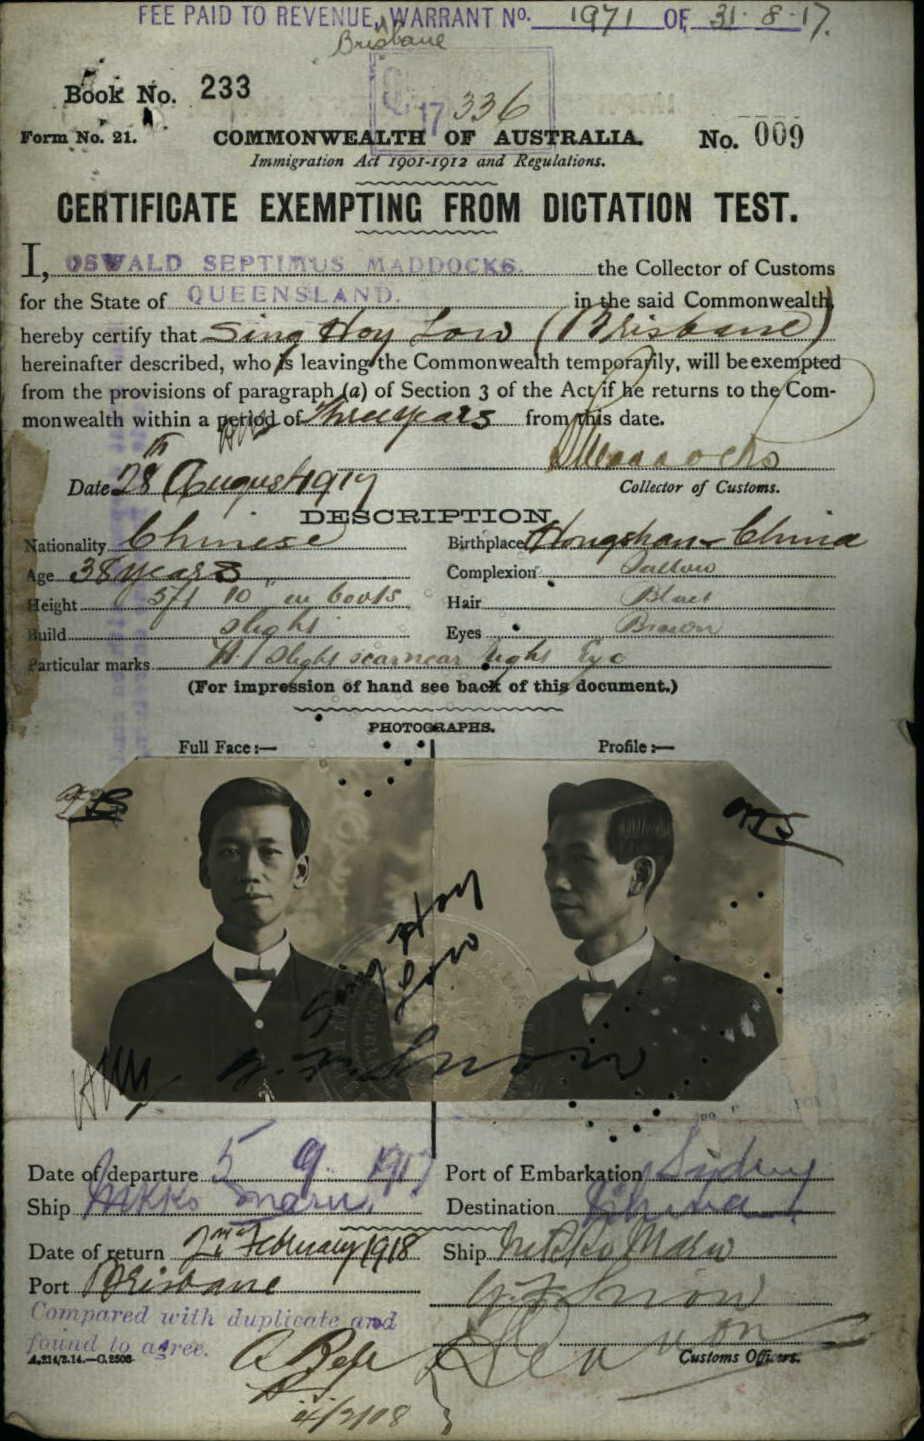 FEE PAID TO REVENUE, WARRANT No. 1971 OF 31-8-17.
Brisbane
Book No. 233
17 336
Form No. 21. COMMONWEALTH OF AUSTRALIA. No. 009
Immigration Act 1901-1912 and Regulations.
CERTIFICATE EXEMPTING FROM DICTATION TEST.
I, OSWALD SEPTIMUS MADDOCKS. the Collector of Customs
for the State of QUEENSLAND. in the said Commonwealth
hereby certify that Sing Hoy Low (Brisbane)
hereinafter described, who is leaving the Commonwealth temporarily, will be exempted
from the provisions of paragraph (a) of Section 3 of the Act if he returns to the Com-
monwealth within a period of Three years from this date.
Date 28th August 1917 Collector of Customs.
DESCRIPTION
Nationality Chinese Birthplace Hongshan China
Age 38 years Complexion Sallow
Height 5ft 10" in boots Hair Black
Build Slight Eyes Brown
Particular marks slight scar near right Eye
(For impression of hand see back of this document.)
PHOTOGRAPHS.
Full Face:— Profile:—
Sing Hoy
Low
Snow
Date of departure 5 9 1917 Port of Embarkation Sidney
Ship Nikko Maru. Destination China
Date of return 2nd February 1918 Ship Nikko Maru
Port Brisbane Snow
Compared with duplicate and
found to agree.
A.214/2.14.—C.2508 Customs Officers.